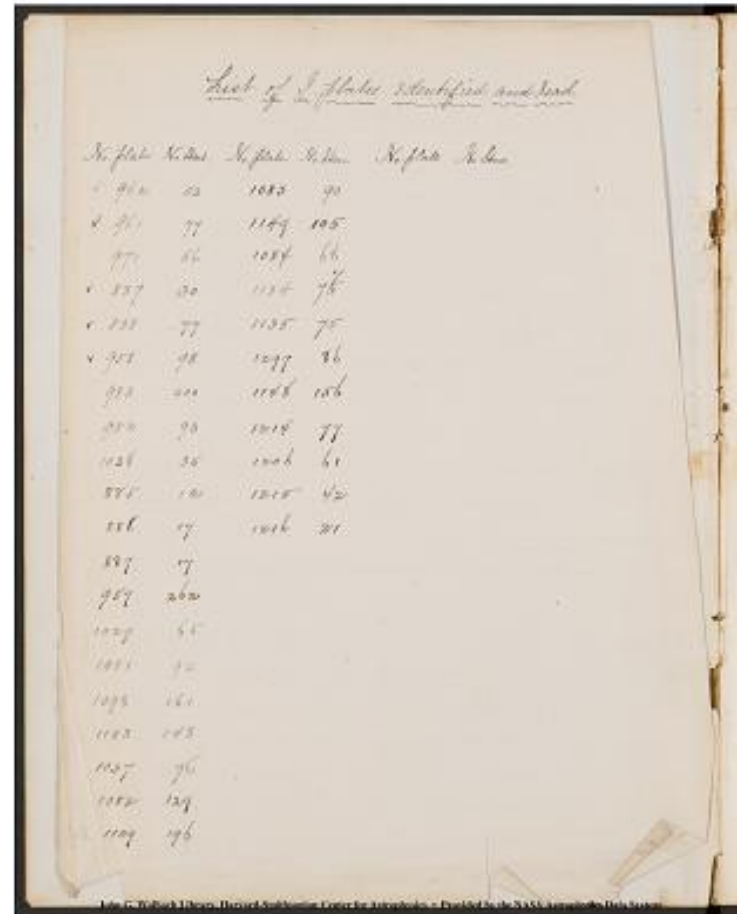 List of I plates identified and read
No. plate No. Stars No. plate No. Stars No. plate No. Stars
962 52 1083 90
961 77 1149 105
971 56 1084 66
✓ 837 30 1134
✓ 838 77 1135 75
✓ 958 98 1297 86
983 1148 156
93 1214 77
1028 35 1206 61
885 1215 42
888 17 1206 21
887 17
959 262
1029 65
92
1093 161
1103 143
1027 76
1082 129
1109 196
John G. Wolbach Library, Harvard-Smithsonian Center for Astrophysics • Provided by the NASA Astrophysics Data System